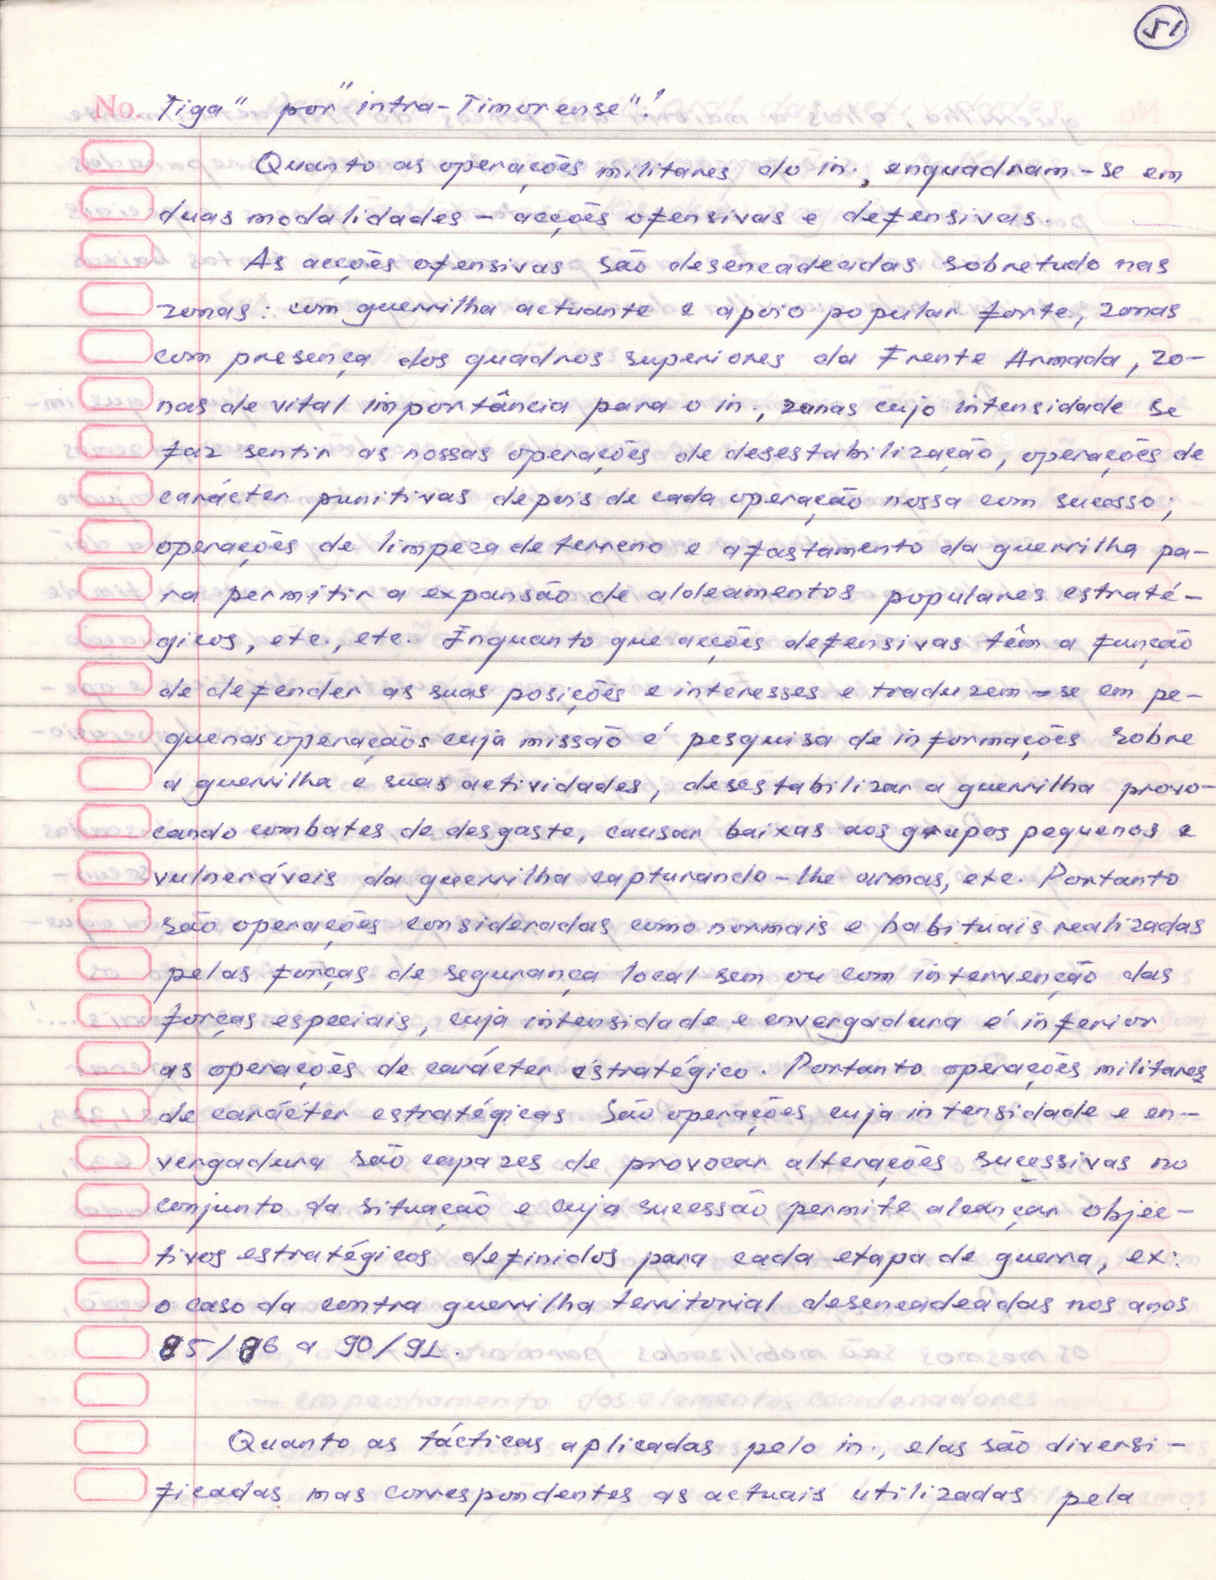 51
No. Tiga" por "intra-Timorense"!
Quanto as operações militares do in., enquadram-se em
duas modalidades - acções ofensivas e defensivas.
As acções ofensivas são desencadeadas sobretudo nas
zonas: com guerrilha actuante e apoio popular forte, zonas
com presença dos quadros superiores da Frente Armada, zo-
nas de vital importância para o in., zonas cujo intensidade se
faz sentir as nossas operações de desestabilização, operações de
carácter punitivas depois de cada operação nossa com sucesso;
operações de limpeza de terreno e afastamento da guerrilha pa-
ra permitir a expansão de aldeamentos populares estraté-
gicos, etc., etc. Enquanto que acções defensivas têm a função
de defender as suas posições e interesses e traduzem-se em pe-
quenas operaçãos cuja missão é pesquisa de informações sobre
a guerrilha e suas actividades, desestabilizar a guerrilha provo-
cando combates de desgaste, causar baixas aos grupos pequenos e
vulneráveis da guerrilha capturando-lhe armas, etc. Portanto
são operações consideradas como normais e habituais realizadas
pelas forças de segurança local sem ou com intervenção das
forças especiais, cuja intensidade e envergadura é inferior
as operações de carácter estratégico. Portanto operações militares
de carácter estratégicas são operações cuja intensidade e en-
vergadura são capazes de provocar alterações sucessivas no
conjunto da situação e cuja sucessão permite alcançar objec-
tivos estratégicos definidos para cada etapa de guerra, ex:
o caso da contra guerrilha territorial desencadeadas nos anos
85/86 a 90/91.
Quanto as tácticas aplicadas pelo in., elas são diversi-
ficadas mas correspondentes as actuais utilizadas pela